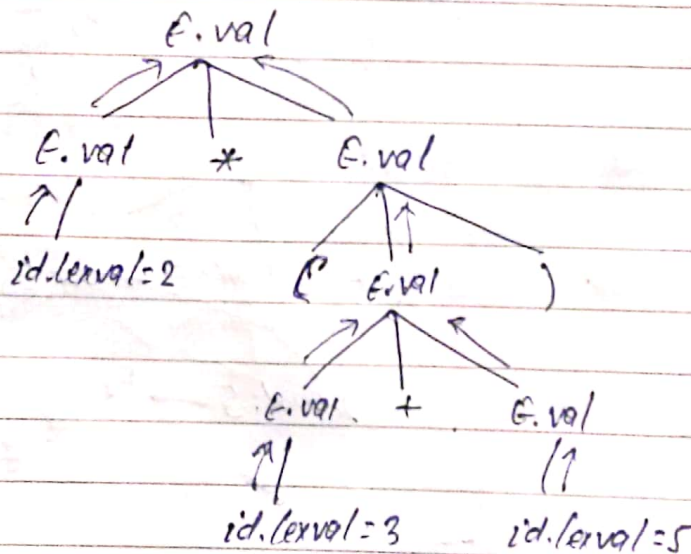 E.val
E.val * E.val
id.lexval=2 ( E.val )
E.val + E.val
id.lexval=3 id.lexval=5